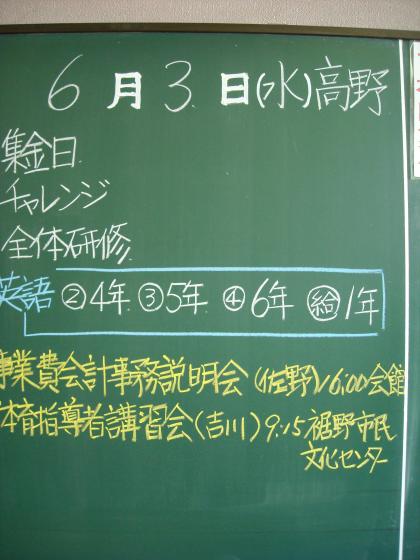 6月3日(水)高野
集金日
チャレンジ
全体研修
英語 ②4年 ③5年 ④6年 ㊗1年
事業費会計事務説明会(佐野)16:00会館
体育指導者講習会(吉川)9:15裾野市民
文化センター